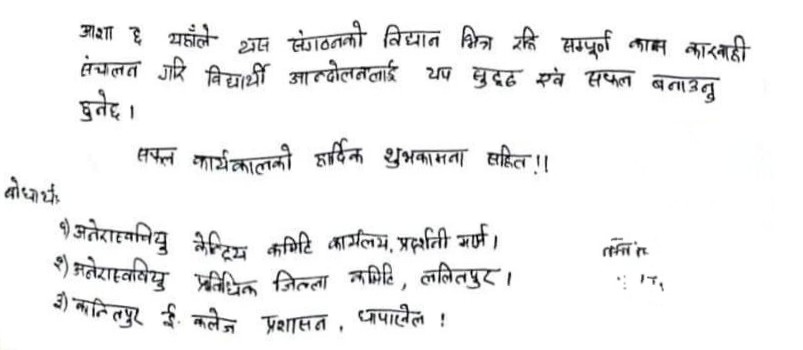 आशा छ यहाँले यस संगठनको विधान भित्र रहि सम्पूर्ण काम कारवाही
संचालन गरि विद्यार्थी आन्दोलनलाई थप सुदृढ एवं सफल बनाउनु
हुनेछ।
सफल कार्यकालको हार्दिक शुभकामना सहित!!
बोधार्थः
१) अनेरास्ववियु केन्द्रिय कमिटि कार्यलय, प्रदर्शनी मार्ग।
२) अनेरास्ववियु प्राविधिक जिल्ला कमिटि, ललितपुर।
३) कान्तिपुर ई. कलेज प्रशासन, धापाखेल!